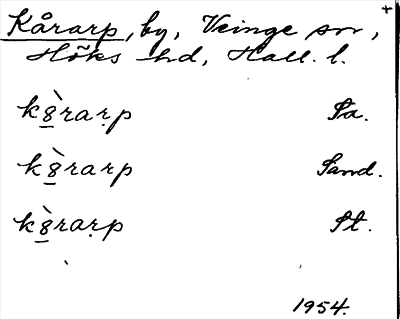 Kårarp, by, Veinge sn, +
Höks hd, Hall. l.
k8̲̀rarp Sa.
k8̲̀rarp Sand.
k8̲̀rarp St.
1954.